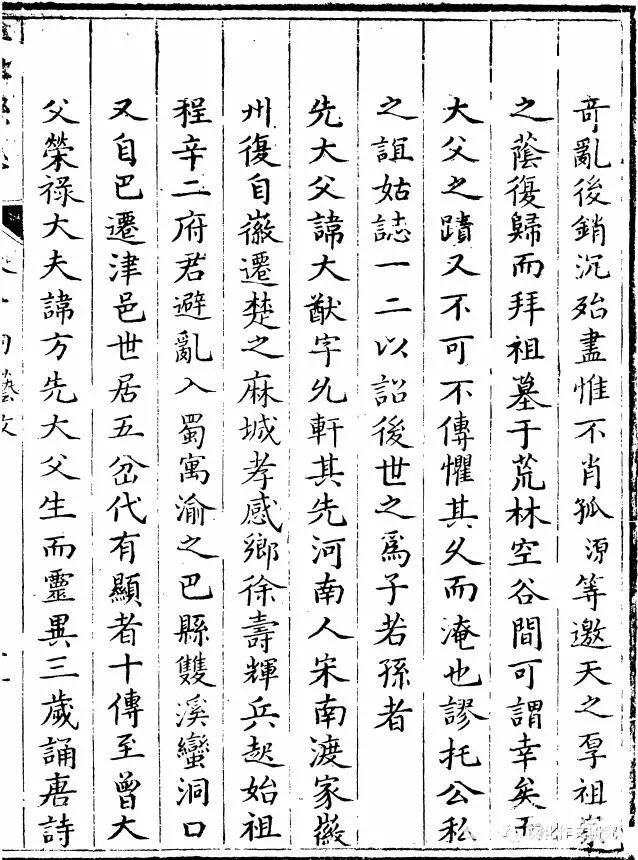 奇亂後銷沉殆盡惟不肖孤源等邀天之厚祖宗
之蔭復歸而拜祖墓于荒林空谷間可謂幸矣而
大父之蹟又不可不傳懼其久而淹也謬托公私
之誼姑誌一二以詔後世之爲子若孫者
先大父諱大猷字允軒其先河南人宋南渡家徽
州復自徽遷楚之麻城孝感鄉徐壽輝兵起始祖
程辛二府君避亂入蜀寓渝之巴縣雙溪蠻洞口
又自巴遷津邑世居五岔代有顯者十傳至曾大
父榮禄大夫諱方先大父生而靈異三歲誦唐詩
藝文